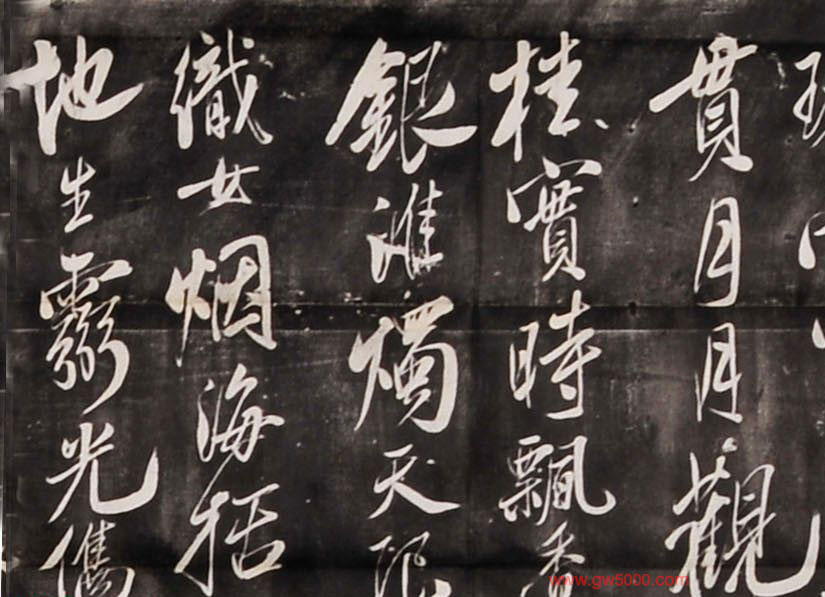 貫月月觀
桂實時飄香
銀淮燭天
織女烟海括
地生光儁
www.gw5000.com